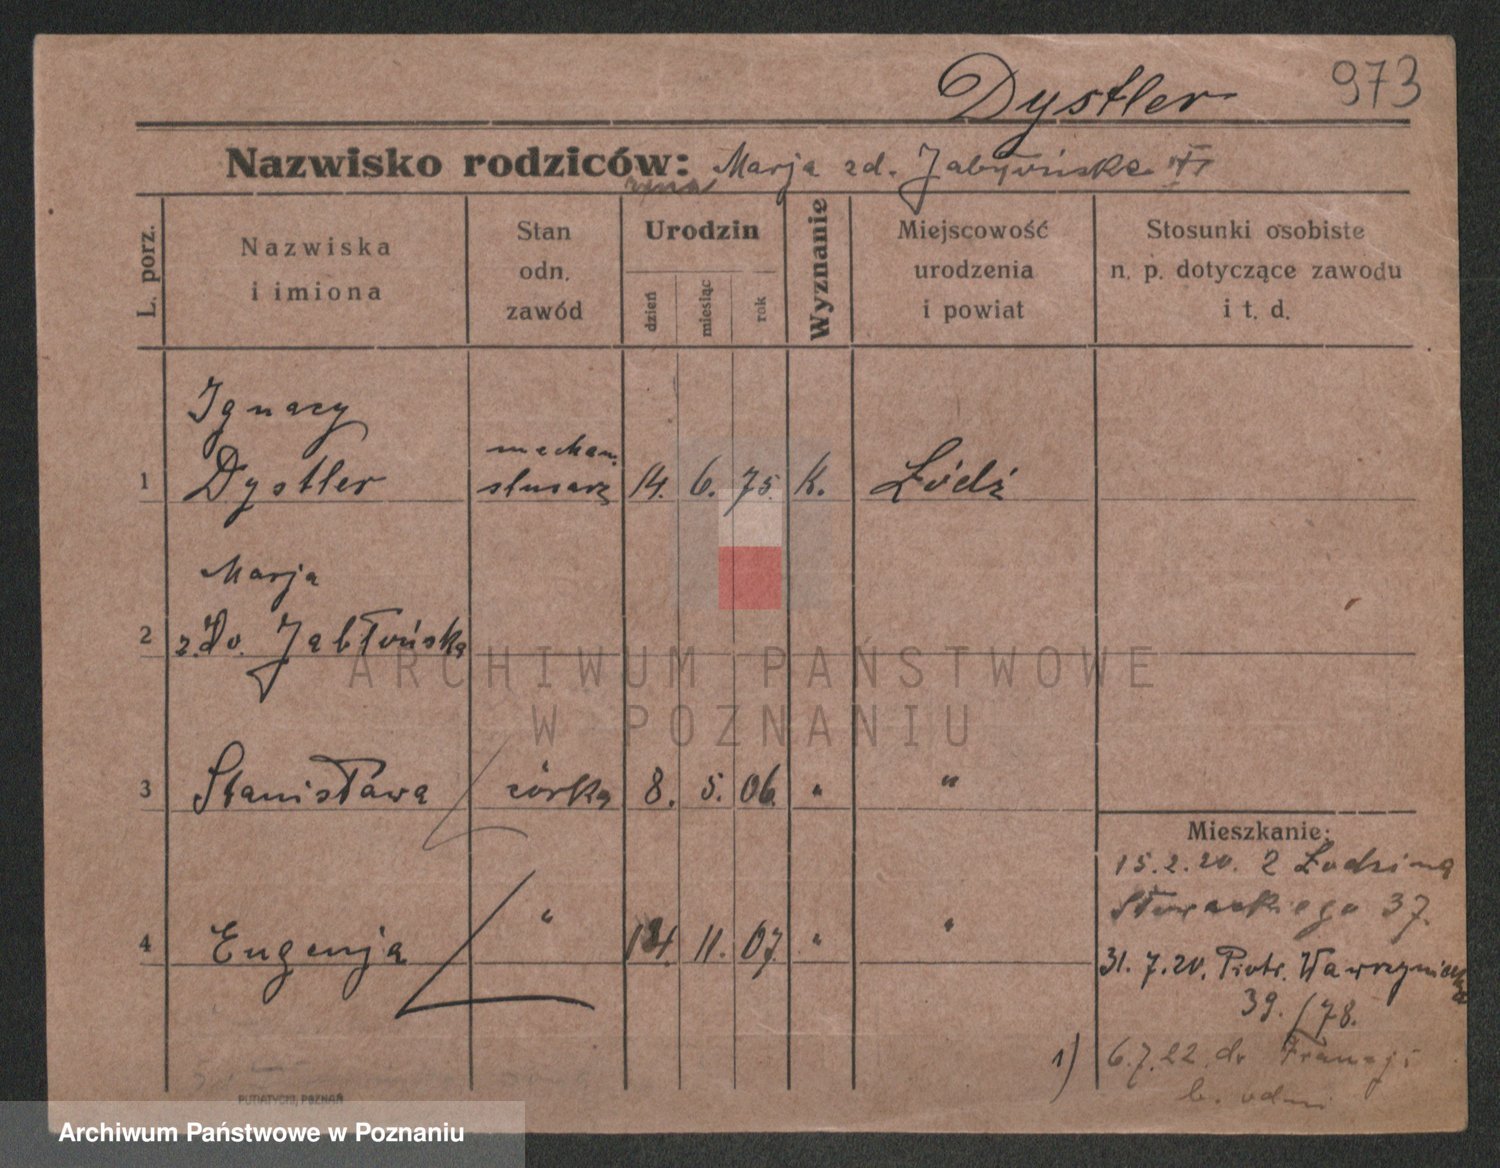 Dystler 973
Nazwisko rodziców: Marja zd. Jabłońska
L. porz.
Nazwiska
i imiona
Stan
odn.
zawód
Urodzin
dzień
miesiąc
rok
Wyznanie
Miejscowość
urodzenia
i powiat
Stosunki osobiste
n. p. dotyczące zawodu
i t. d.
Ignacy
mechan.
1 Dystler slusarz 14. 6. 75. K. Łódź
Marja
2 z. Do. Jabłońska
3 Stanisława córka 8. 5. 06. " "
Mieszkanie:
15.2.20. Z Łodzi na
Słowackiego 37.
4 Eugenja " 11. 07. " "
31.7.20. Piotr. Wawrzyniaka
39. /78.
1) 6.7.22. do Francji
b. odm
PUTIATYCKI, POZNAŃ
ARCHIWUM PAŃSTWOWE
W POZNANIU
Archiwum Państwowe w Poznaniu